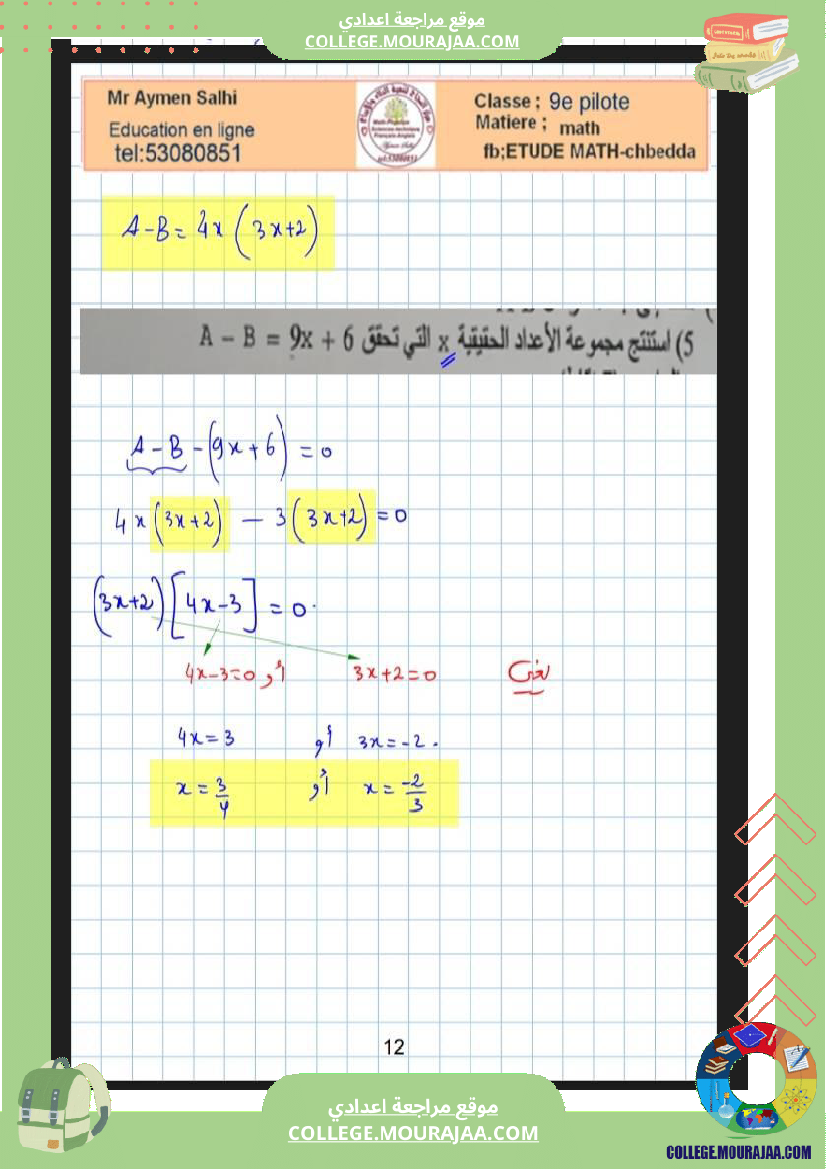 موقع مراجعة اعدادي
COLLEGE.MOURAJAA.COM
Mr Aymen Salhi
Education en ligne
tel:53080851
Classe ; 9e pilote
Matiere ; math
fb;ETUDE MATH-chbedda
A-B = 4x (3x+2)
5) استنتج مجموعة الأعداد الحقيقية x التي تحقق A - B = 9x + 6
A - B - (9x + 6) = 0
4x (3x+2) - 3 (3x+2) = 0
(3x+2) [4x-3] = 0.
يعني 3x+2=0 أو 4x-3=0
3x = -2. أو 4x = 3
x = -2/3 أو x = 3/4
12
موقع مراجعة اعدادي
COLLEGE.MOURAJAA.COM
COLLEGE.MOURAJAA.COM